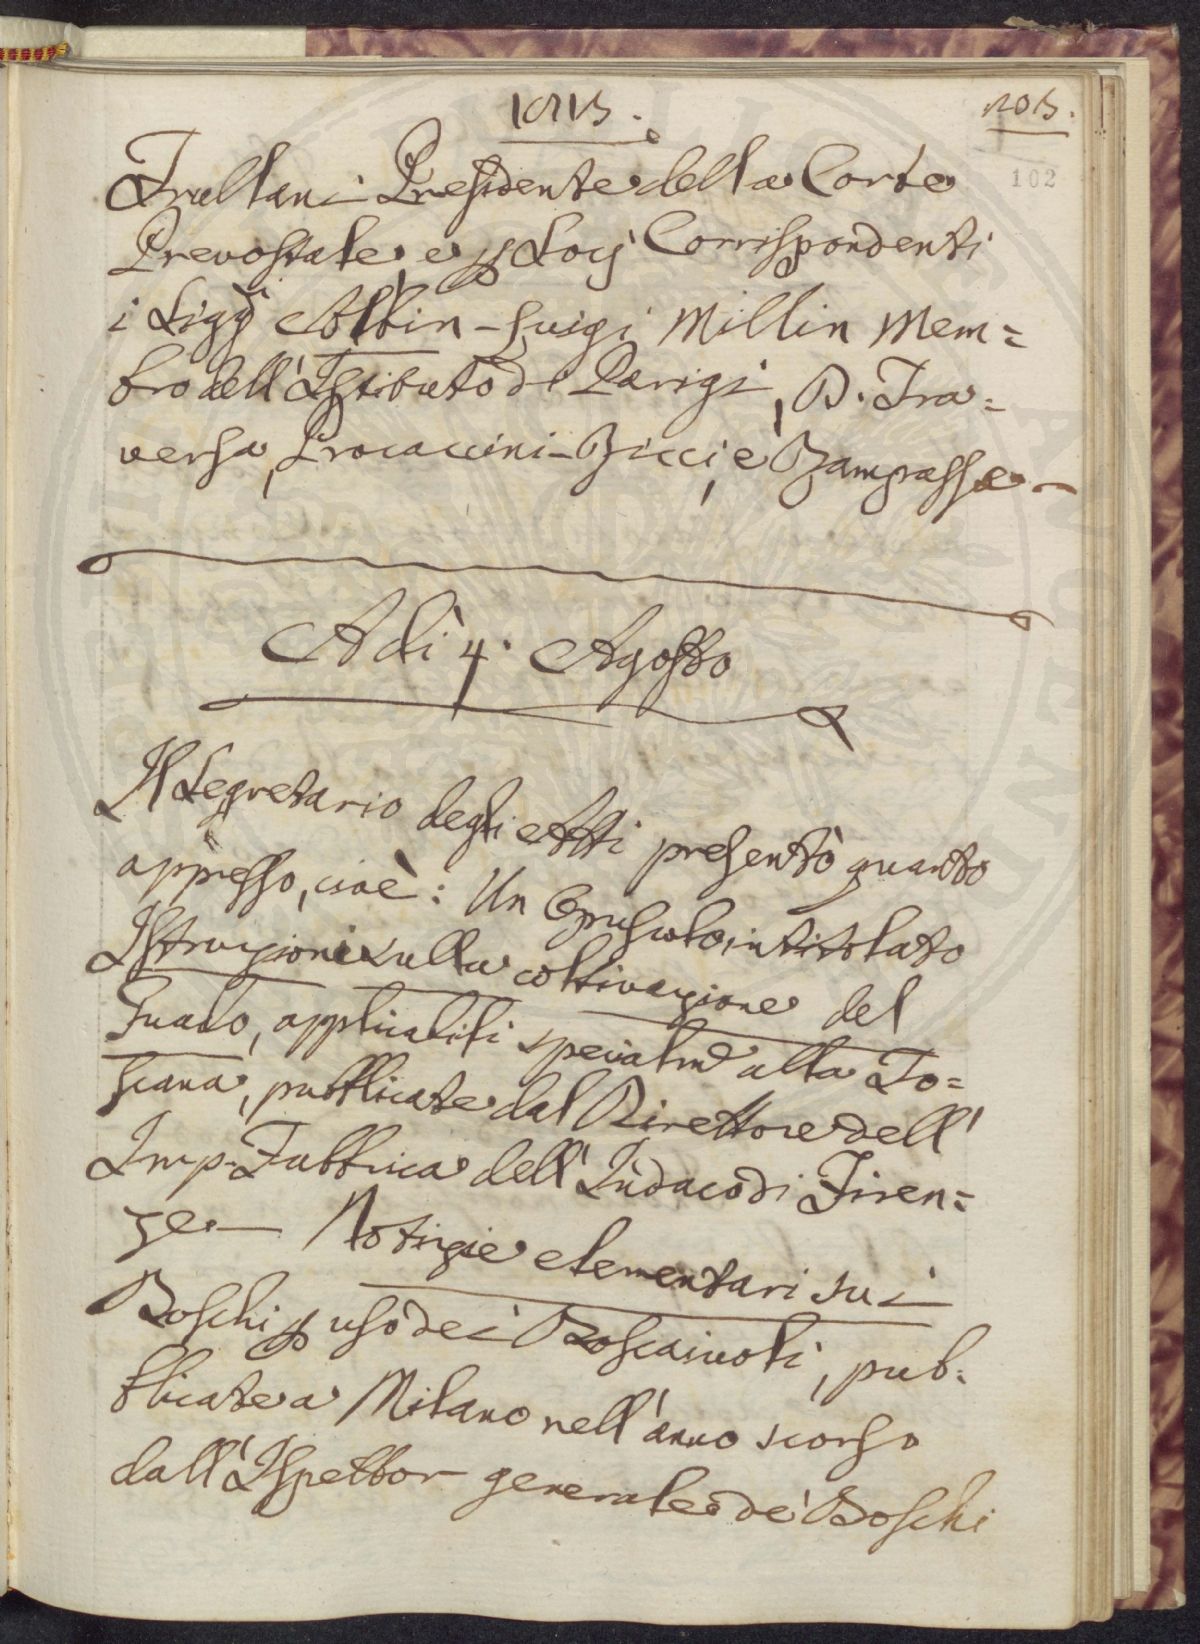 1813.
203.
102
Frullani Presidente della Corte
Prevostale, e p Socj Corrispondenti
i Sigg Albin-Luigi Millin Mem=
bro dell'Istituto di Parigi, D. Tra=
versa, Procaccini-Ricci, e Bamprassa
Adì 4. Agosto
Il Segretario degli Atti presentò quanto
appresso, cioè: Un Opuscolo intitolato
Istruzioni sulla coltivazione del
Guado, applicabili specialme alla To=
scana, pubblicate dal Direttore dell'
Imp. Fabbrica dell'Indaco di Firen=
ze — Notizie elementari sui
Boschi p uso dei Boscaiuoli, pub=
blicate a Milano nell'anno scorso
dall'Ispettor generale de' Boschi